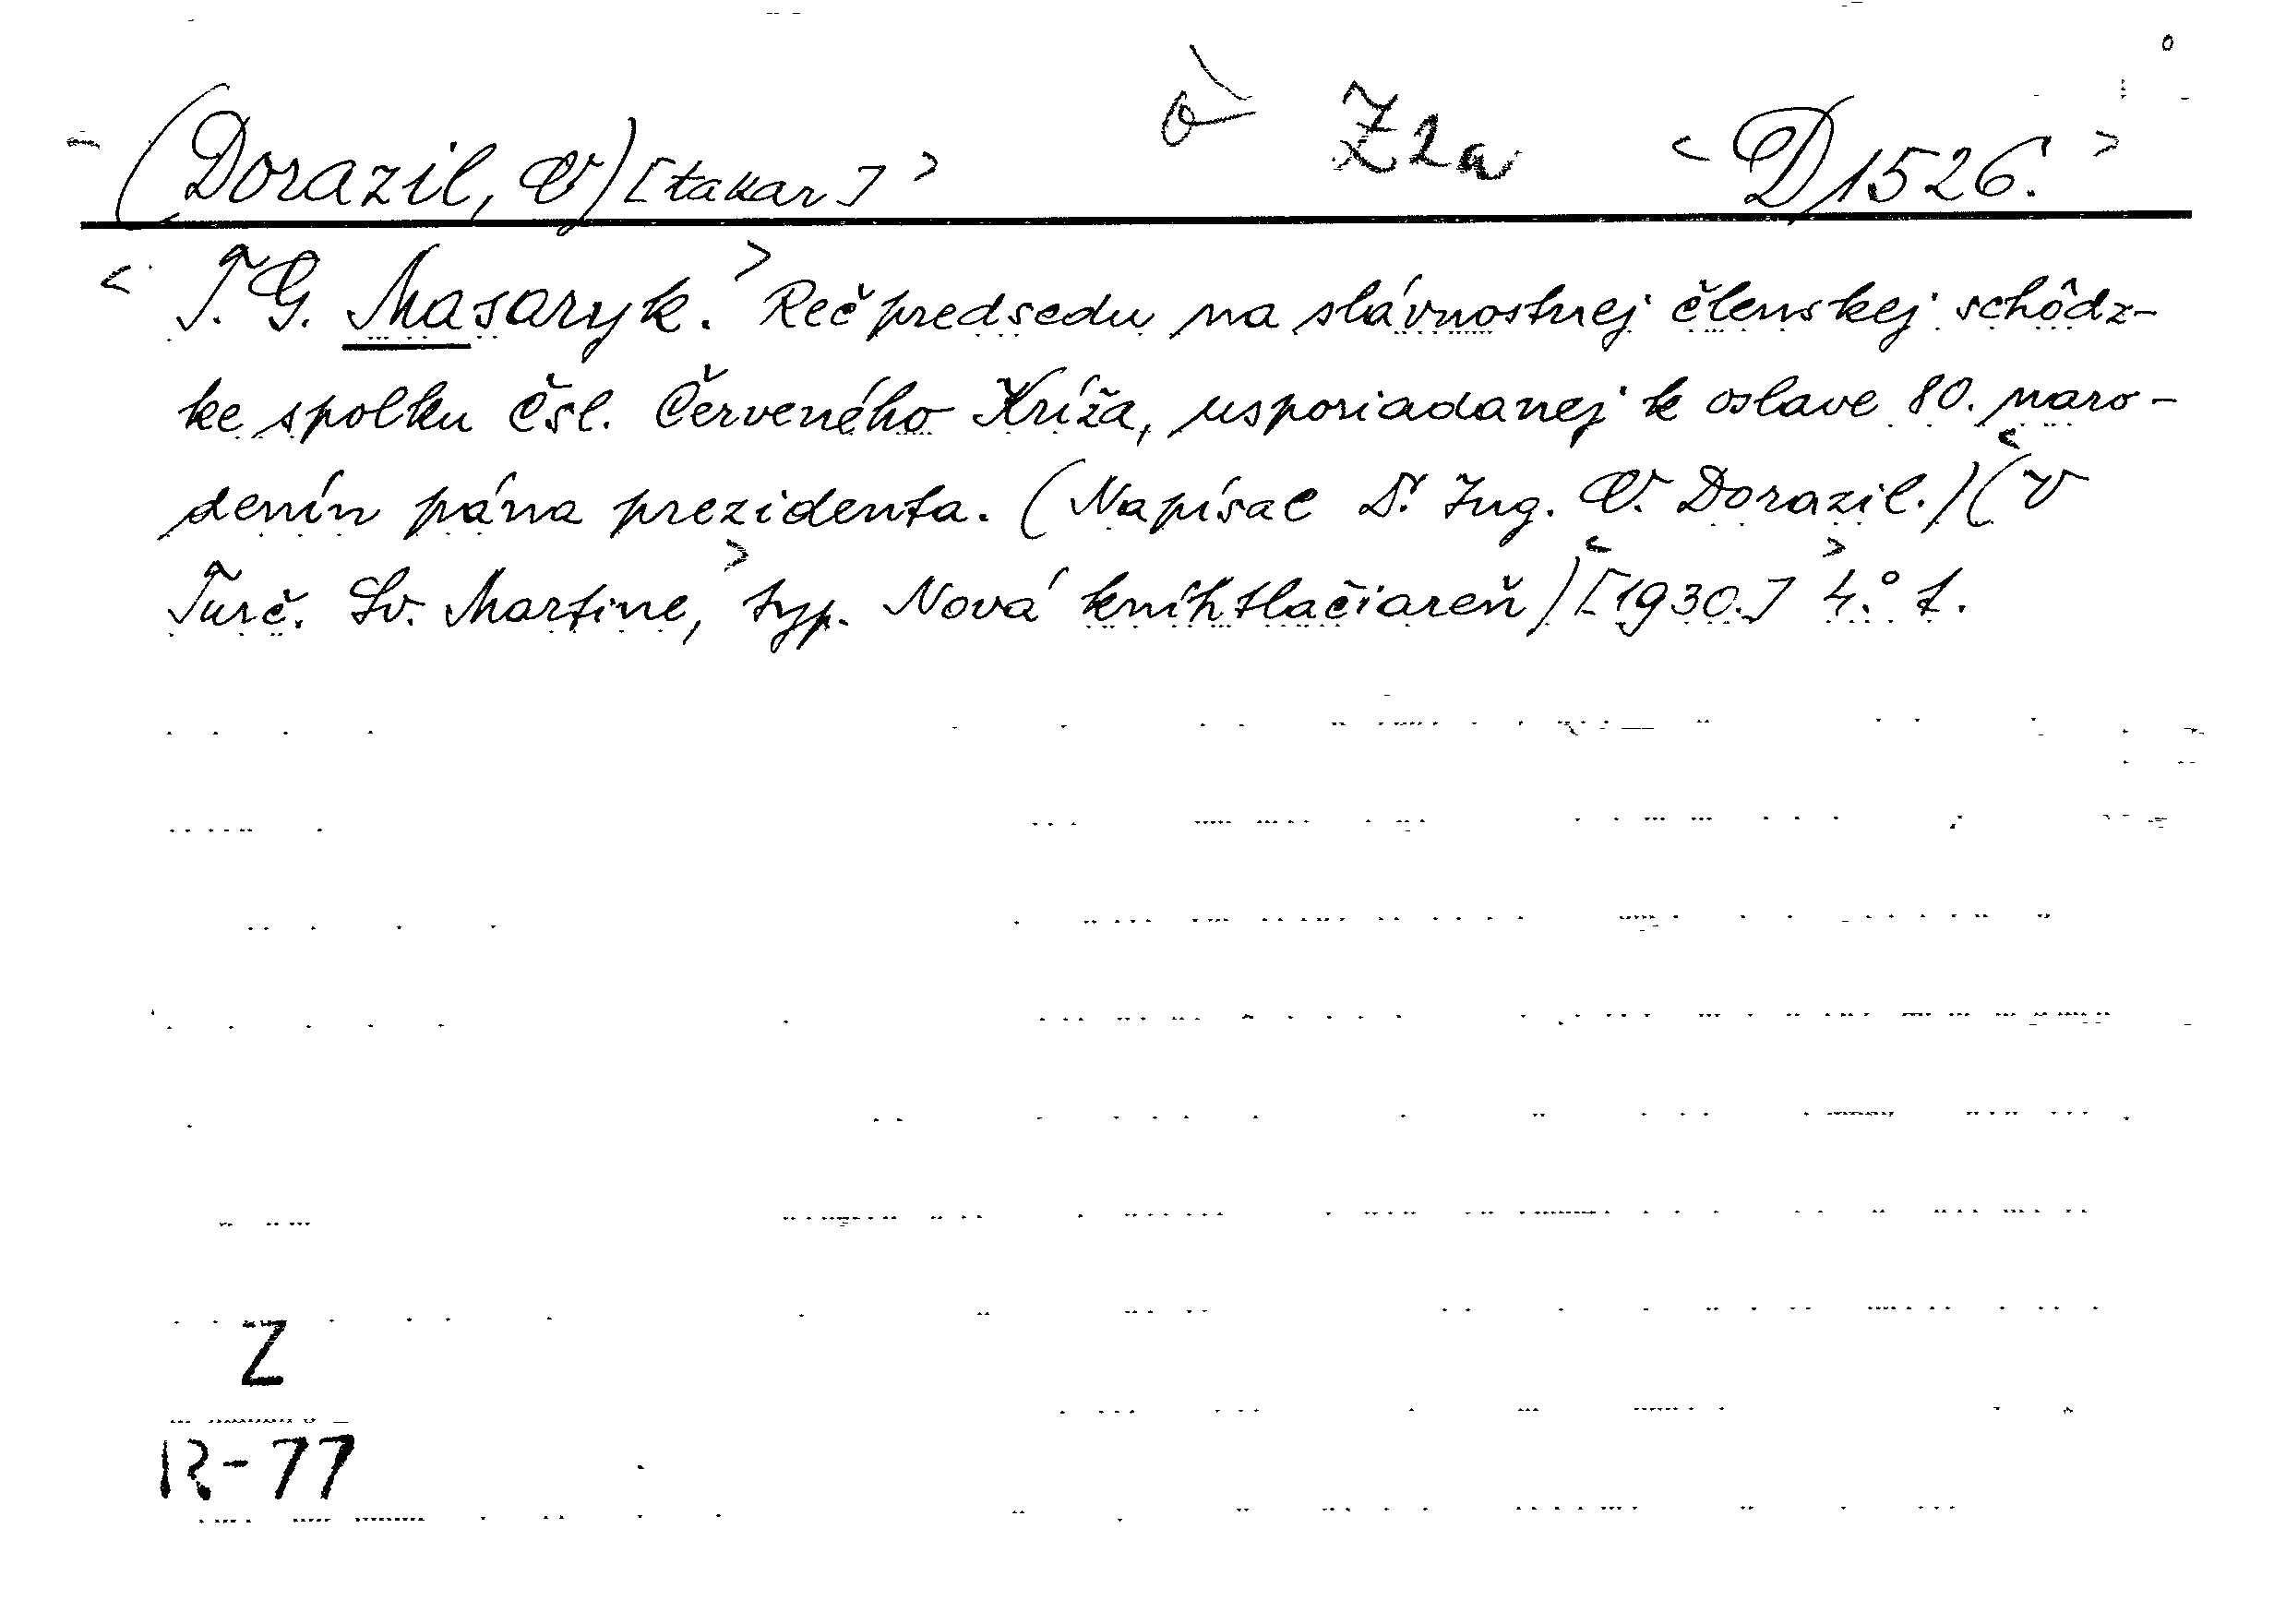 (Dorazil, V) [takar] > Z2a < D 1526. >
< T. G. Masaryk. > Reč predsedu na slávnostnej členskej schôdz-
ke spolku Čsl. Červeného Kríža, usporiadanej k oslave 80. naro-
denín pána prezidenta. (Napísal Dr. Ing. V. Dorazil.) (V
Turč. Sv. Martine, > typ. Nová kníhtlačiareň) < [1930.] > 4.°
Z
R-77